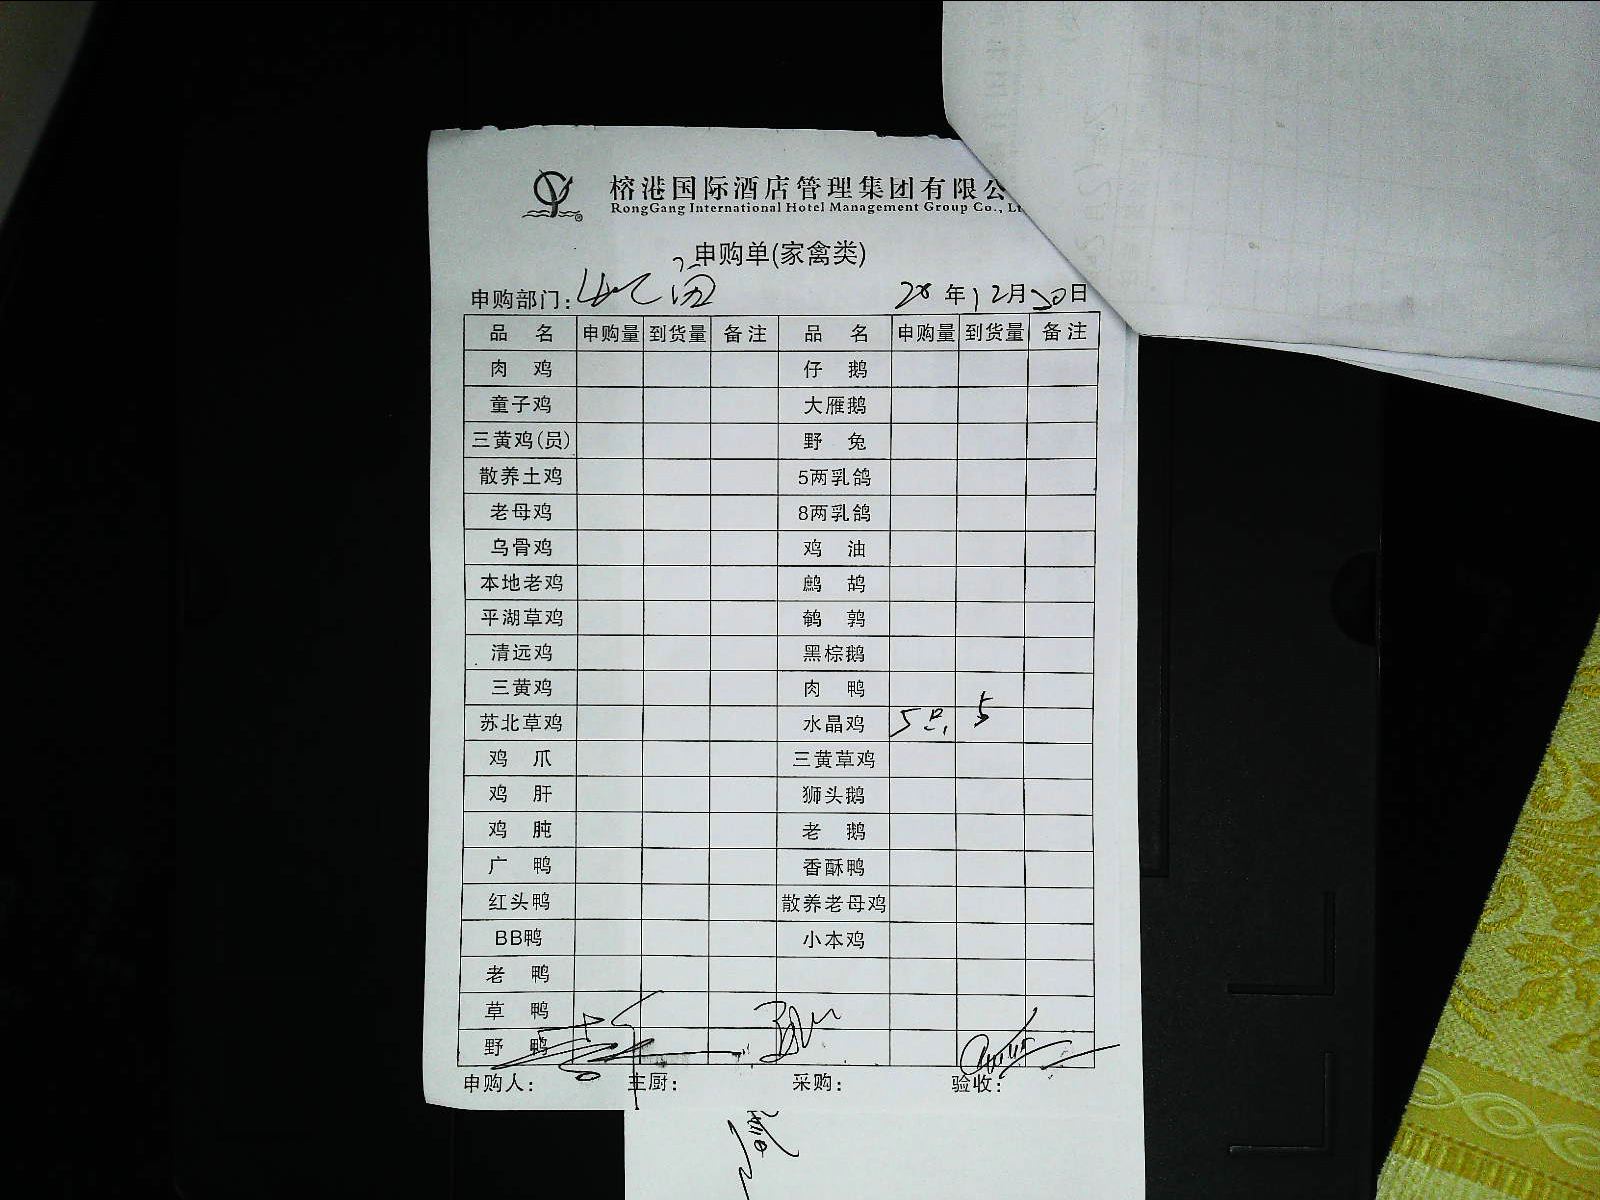 榕港国际酒店管理集团有限公
RongGang International Hotel Management Group Co., Lt
申购单(家禽类)
申购部门: 年12月30日
品 名 申购量 到货量 备注 品 名 申购量 到货量 备注
肉 鸡 仔 鹅
童子鸡 大雁鹅
三黄鸡(员) 野 兔
散养土鸡 5两乳鸽
老母鸡 8两乳鸽
乌骨鸡 鸡 油
本地老鸡 鹧 鸪
平湖草鸡 鹌 鹑
清远鸡 黑棕鹅
三黄鸡 肉 鸭
苏北草鸡 水晶鸡 5只 5
鸡 爪 三黄草鸡
鸡 肝 狮头鹅
鸡 肫 老 鹅
广 鸭 香酥鸭
红头鸭 散养老母鸡
BB鸭 小本鸡
老 鸭
草 鸭
野 鸭
申购人: 主厨: 采购: 验收: